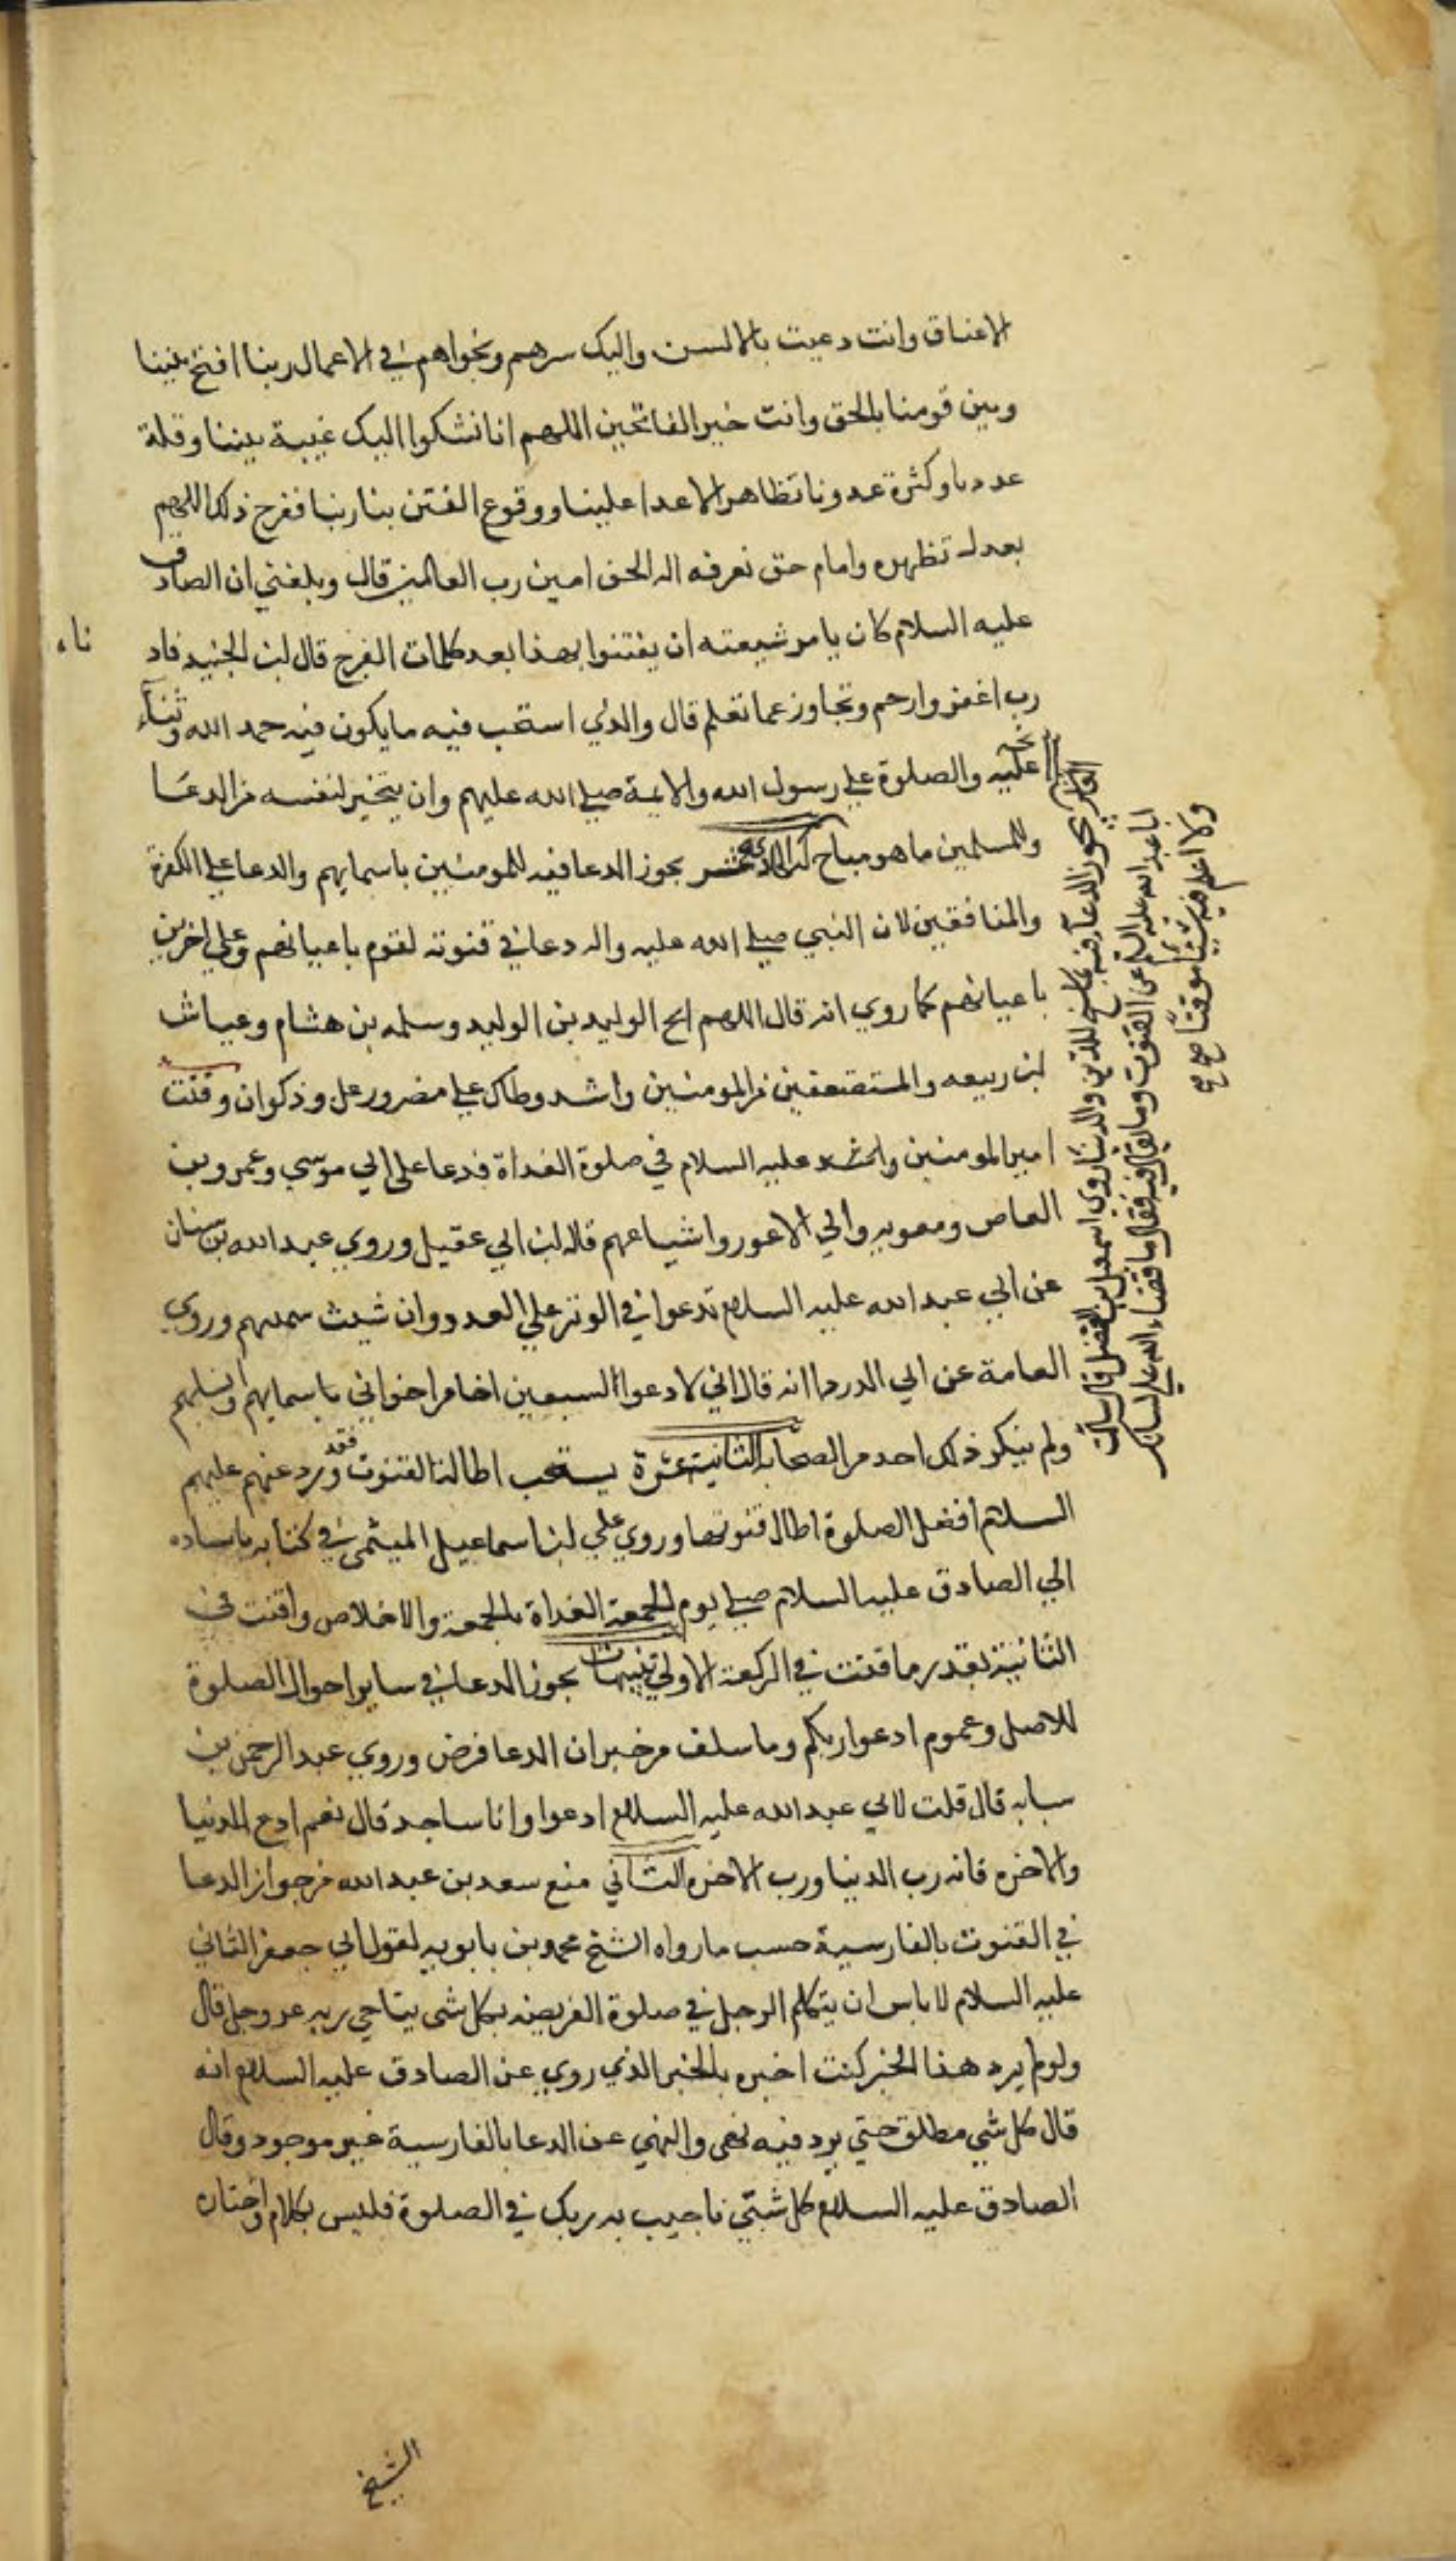 الاعناق وانت دعيت بالالسن واليك سرهم ونجواهم في الاعمال ربنا افتح بيننا
وبين قومنا بالحق وانت خير الفاتحين اللهم انا نشكوا اليك غيبة نبينا وقلة
عددنا وكثرة عدونا وتظاهر الاعدا علينا ووقوع الفتن بنا ربنا ففرج ذلك اللهم
بعدل تظهره وامام حق نعرفه اله الحق امين رب العالمين قال وبلغني ان الصادق
عليه السلام كان يامر شيعته ان يقنتوا بهذا بعد كلمات الفرج قال ابن الجنيد فاد
ناه
رب اغفر وارحم وتجاوز عما تعلم قال والذي استحب فيه ما يكون فيه حمد الله وثناء
عليه والصلوة علي رسول الله والايمة صلي الله عليهم وان يتخير لنفسه من الدعا
وللمسلمين ما هو مباح له الحادية عشر يجوز الدعا فيه للمومنين باسمايهم والدعا علي الكفرة
والمنافقين لان النبي صلي الله عليه واله دعا في قنوته لقوم باعيانهم وعلي اخرين
باعيانهم كما روي انه قال اللهم انج الوليد بن الوليد وسلمه بن هشام وعياش
ابن ربيعه والمستضعفين من المومنين واشدد وطاتك علي مضر ورعل وذكوان وقنت
امير المومنين عليه السلام في صلوة الغداة فدعا علي ابي موسي وعمرو بن
العاص ومعويه وابي الاعور واشياعهم قاله ابن ابي عقيل وروي عبد الله بن سنان
عن ابي عبد الله عليه السلام تدعوا في الوتر علي العدو وان شيت سميتهم وروي
العامة عن ابي الدرداا انه قال اني لادعوا لسبعين اخا من اخواني باسمايهم وانسابهم
ولم ينكر ذلك احد من الصحابه الثانية عشرة يستحب اطالة القنوت فقد ورد عنهم عليهم
السلام افضل الصلوة اطال قنوتها وروي علي ابن اسماعيل الميثمي في كتابه باسناده
الي الصادق عليه السلام صلي يوم الجمعة الغداة بالجمعة والاخلاص واقنت في
الثانية بقدر ما قنت في الركعة الاولي تنبيهات يجوز الدعا في ساير احوال الصلوة
للاصل وعموم ادعوا ربكم وما سلف من خبر ان الدعا فرض وروي عبد الرحمن بن
سيابه قال قلت لابي عبد الله عليه السلام ادعوا وانا ساجد قال نعم ادع للدنيا
والاخره فانه رب الدنيا ورب الاخره الثاني منع سعد بن عبد الله من جواز الدعا
في القنوت بالفارسية حسب ما رواه الشيخ محمد بن بابويه لقول ابي جعفر الثاني
عليه السلام لا باس ان يتكلم الرجل في صلوة الفريضه بكل شي يناجي ربه عز وجل قال
ولو لم يرد هذا الخبر كنت اخبره بالخبر الذي روي عن الصادق عليه السلام انه
قال كل شي مطلق حتي يرد فيه نهي والنهي عن الدعا بالفارسية غير موجود وقال
الصادق عليه السلام كل شي ناجيت به ربك في الصلوة فليس بكلام واختاره
العاشر يجوز الدعاء فيه بما سنح للدين والدنيا روي اسمعيل بن الفضل قال سالت
ابا عبد الله عليه السلم عن القنوت وما يقال فيه فقال ما قضاء الله علي لسانك
ولا اعلم فيه شيئا موقتا صح صح
الشيخ